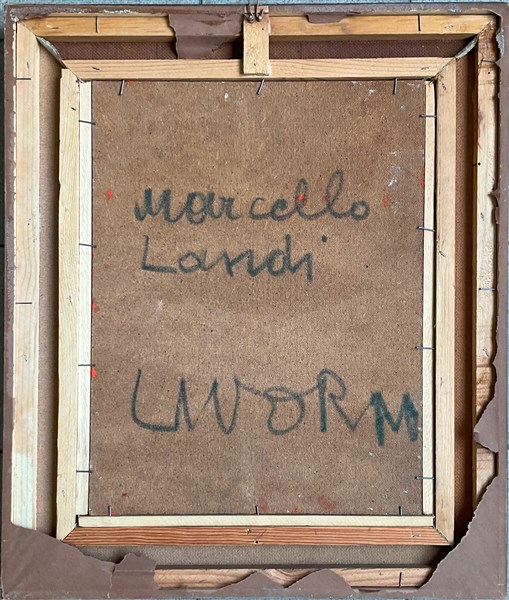 Marcello
Landi
LIVORM